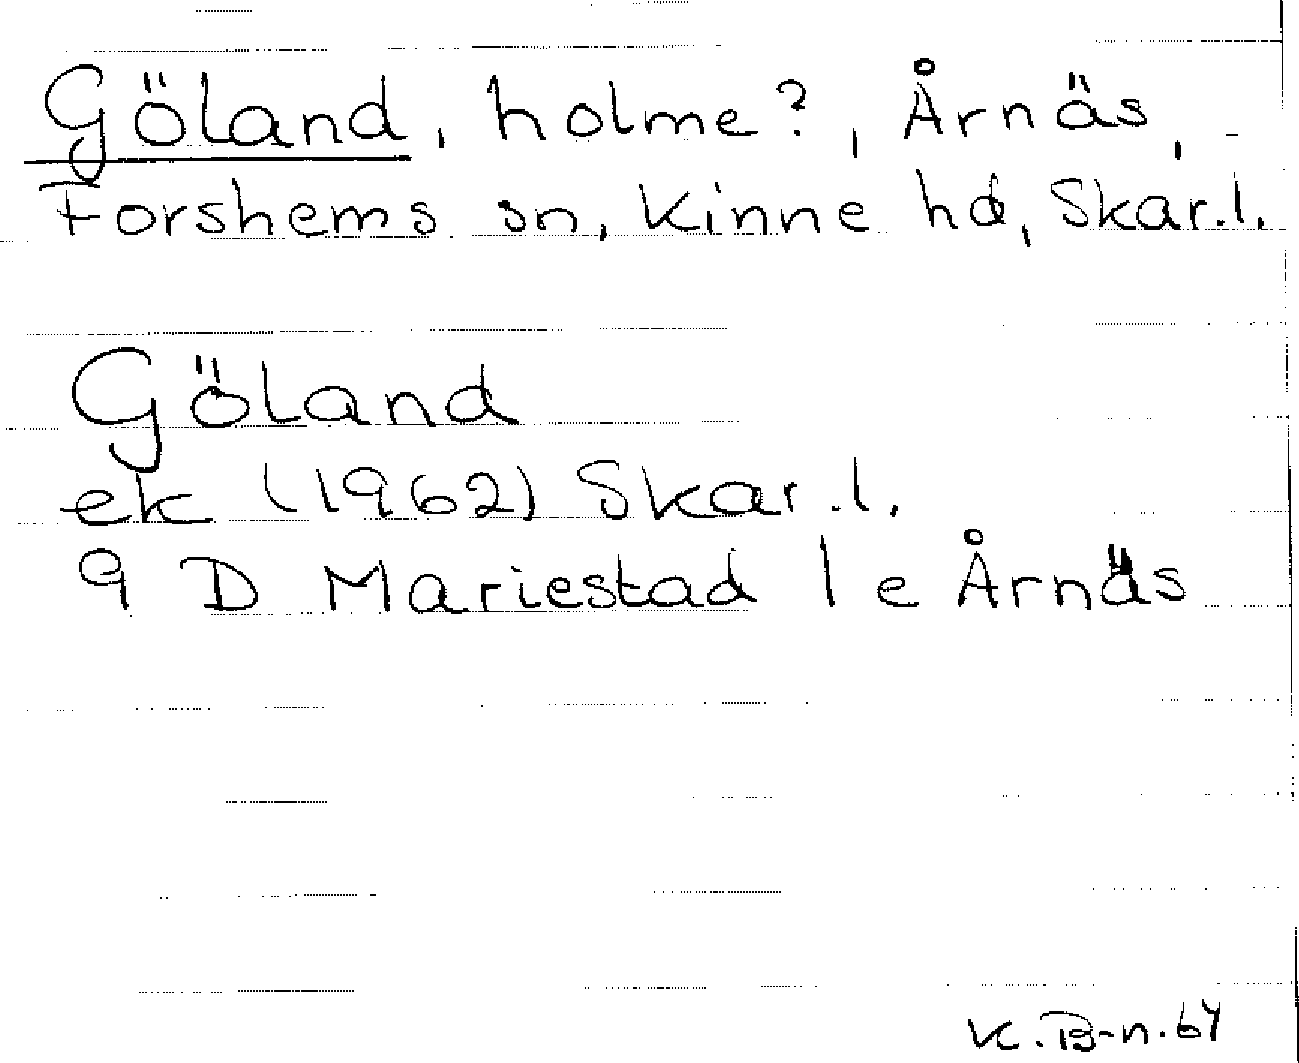 Göland, holme?, Årnäs,
Forshems sn, Kinne hd, Skar.l.
Göland
ek (1962) Skar.l.
9 D Mariestad 1 e Årnäs
K.B-n.64